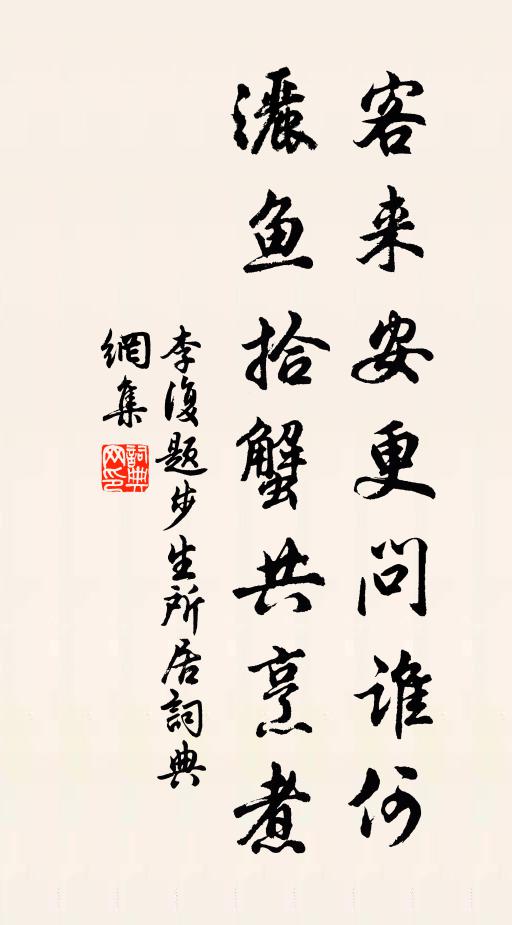 客来安更问谁何
灑鱼拾蟹共烹煮
李復题步生所居詞典
網集
詞典网印